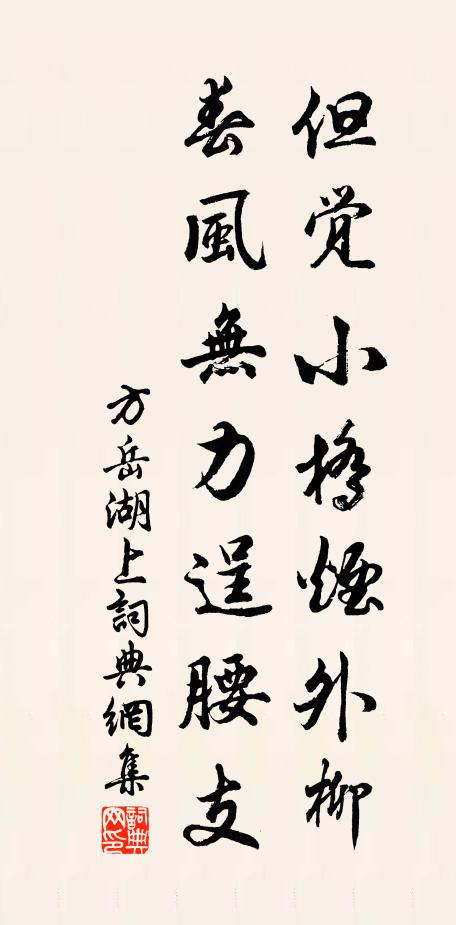 但覺小橋煙外柳
春風無力逞腰支
方岳湖上詞典網集
詞典網印